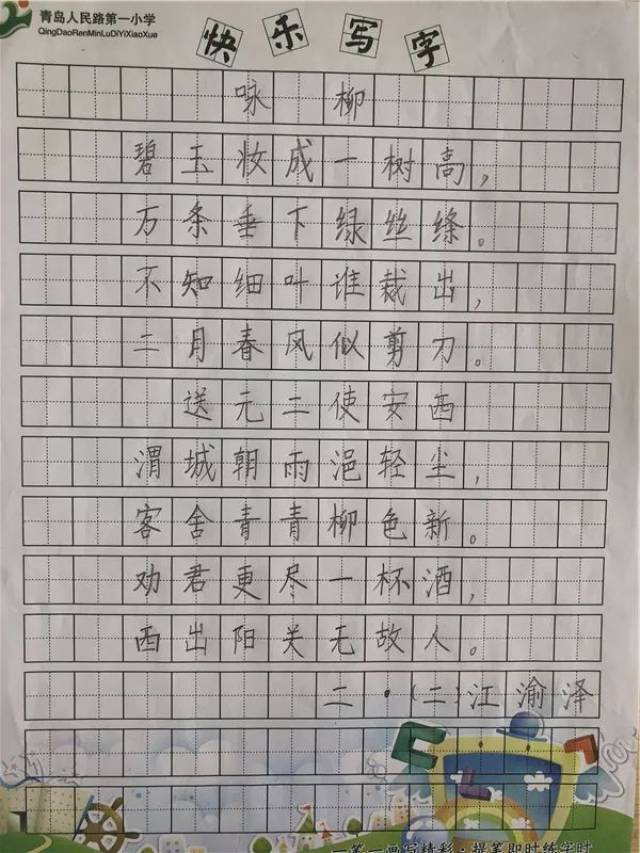 青岛人民路第一小学
QingDaoRenMinLuDiYiXiaoXue
快乐写字
咏柳
碧玉妆成一树高，
万条垂下绿丝绦。
不知细叶谁裁出，
二月春风似剪刀。
送元二使安西
渭城朝雨浥轻尘，
客舍青青柳色新。
劝君更尽一杯酒，
西出阳关无故人。
二·(二)江渝泽
一笔一画写精彩·提笔即时练字时